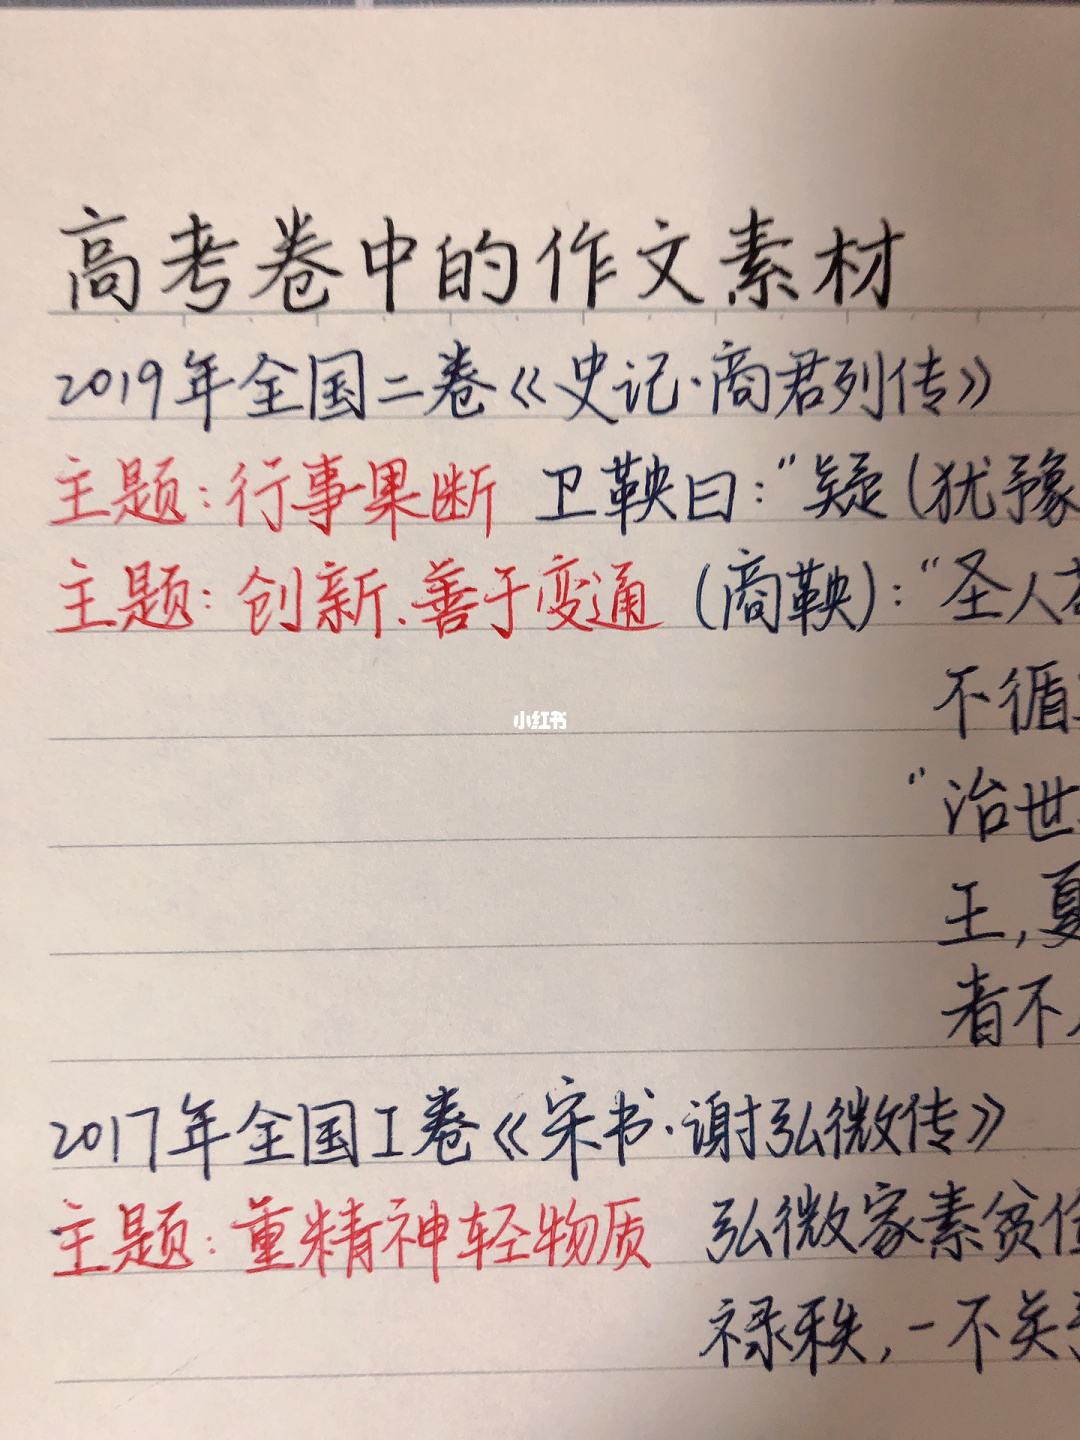 高考卷中的作文素材
2019年全国二卷《史记·商君列传》
主题：行事果断 卫鞅曰："疑（犹豫
主题：创新、善于变通（商鞅）："圣人
不循
小红书
"治世
王，夏
者不
2017年全国I卷《宋书·谢弘微传》
主题：重精神轻物质 弘微家素贫
禄秩，一不关